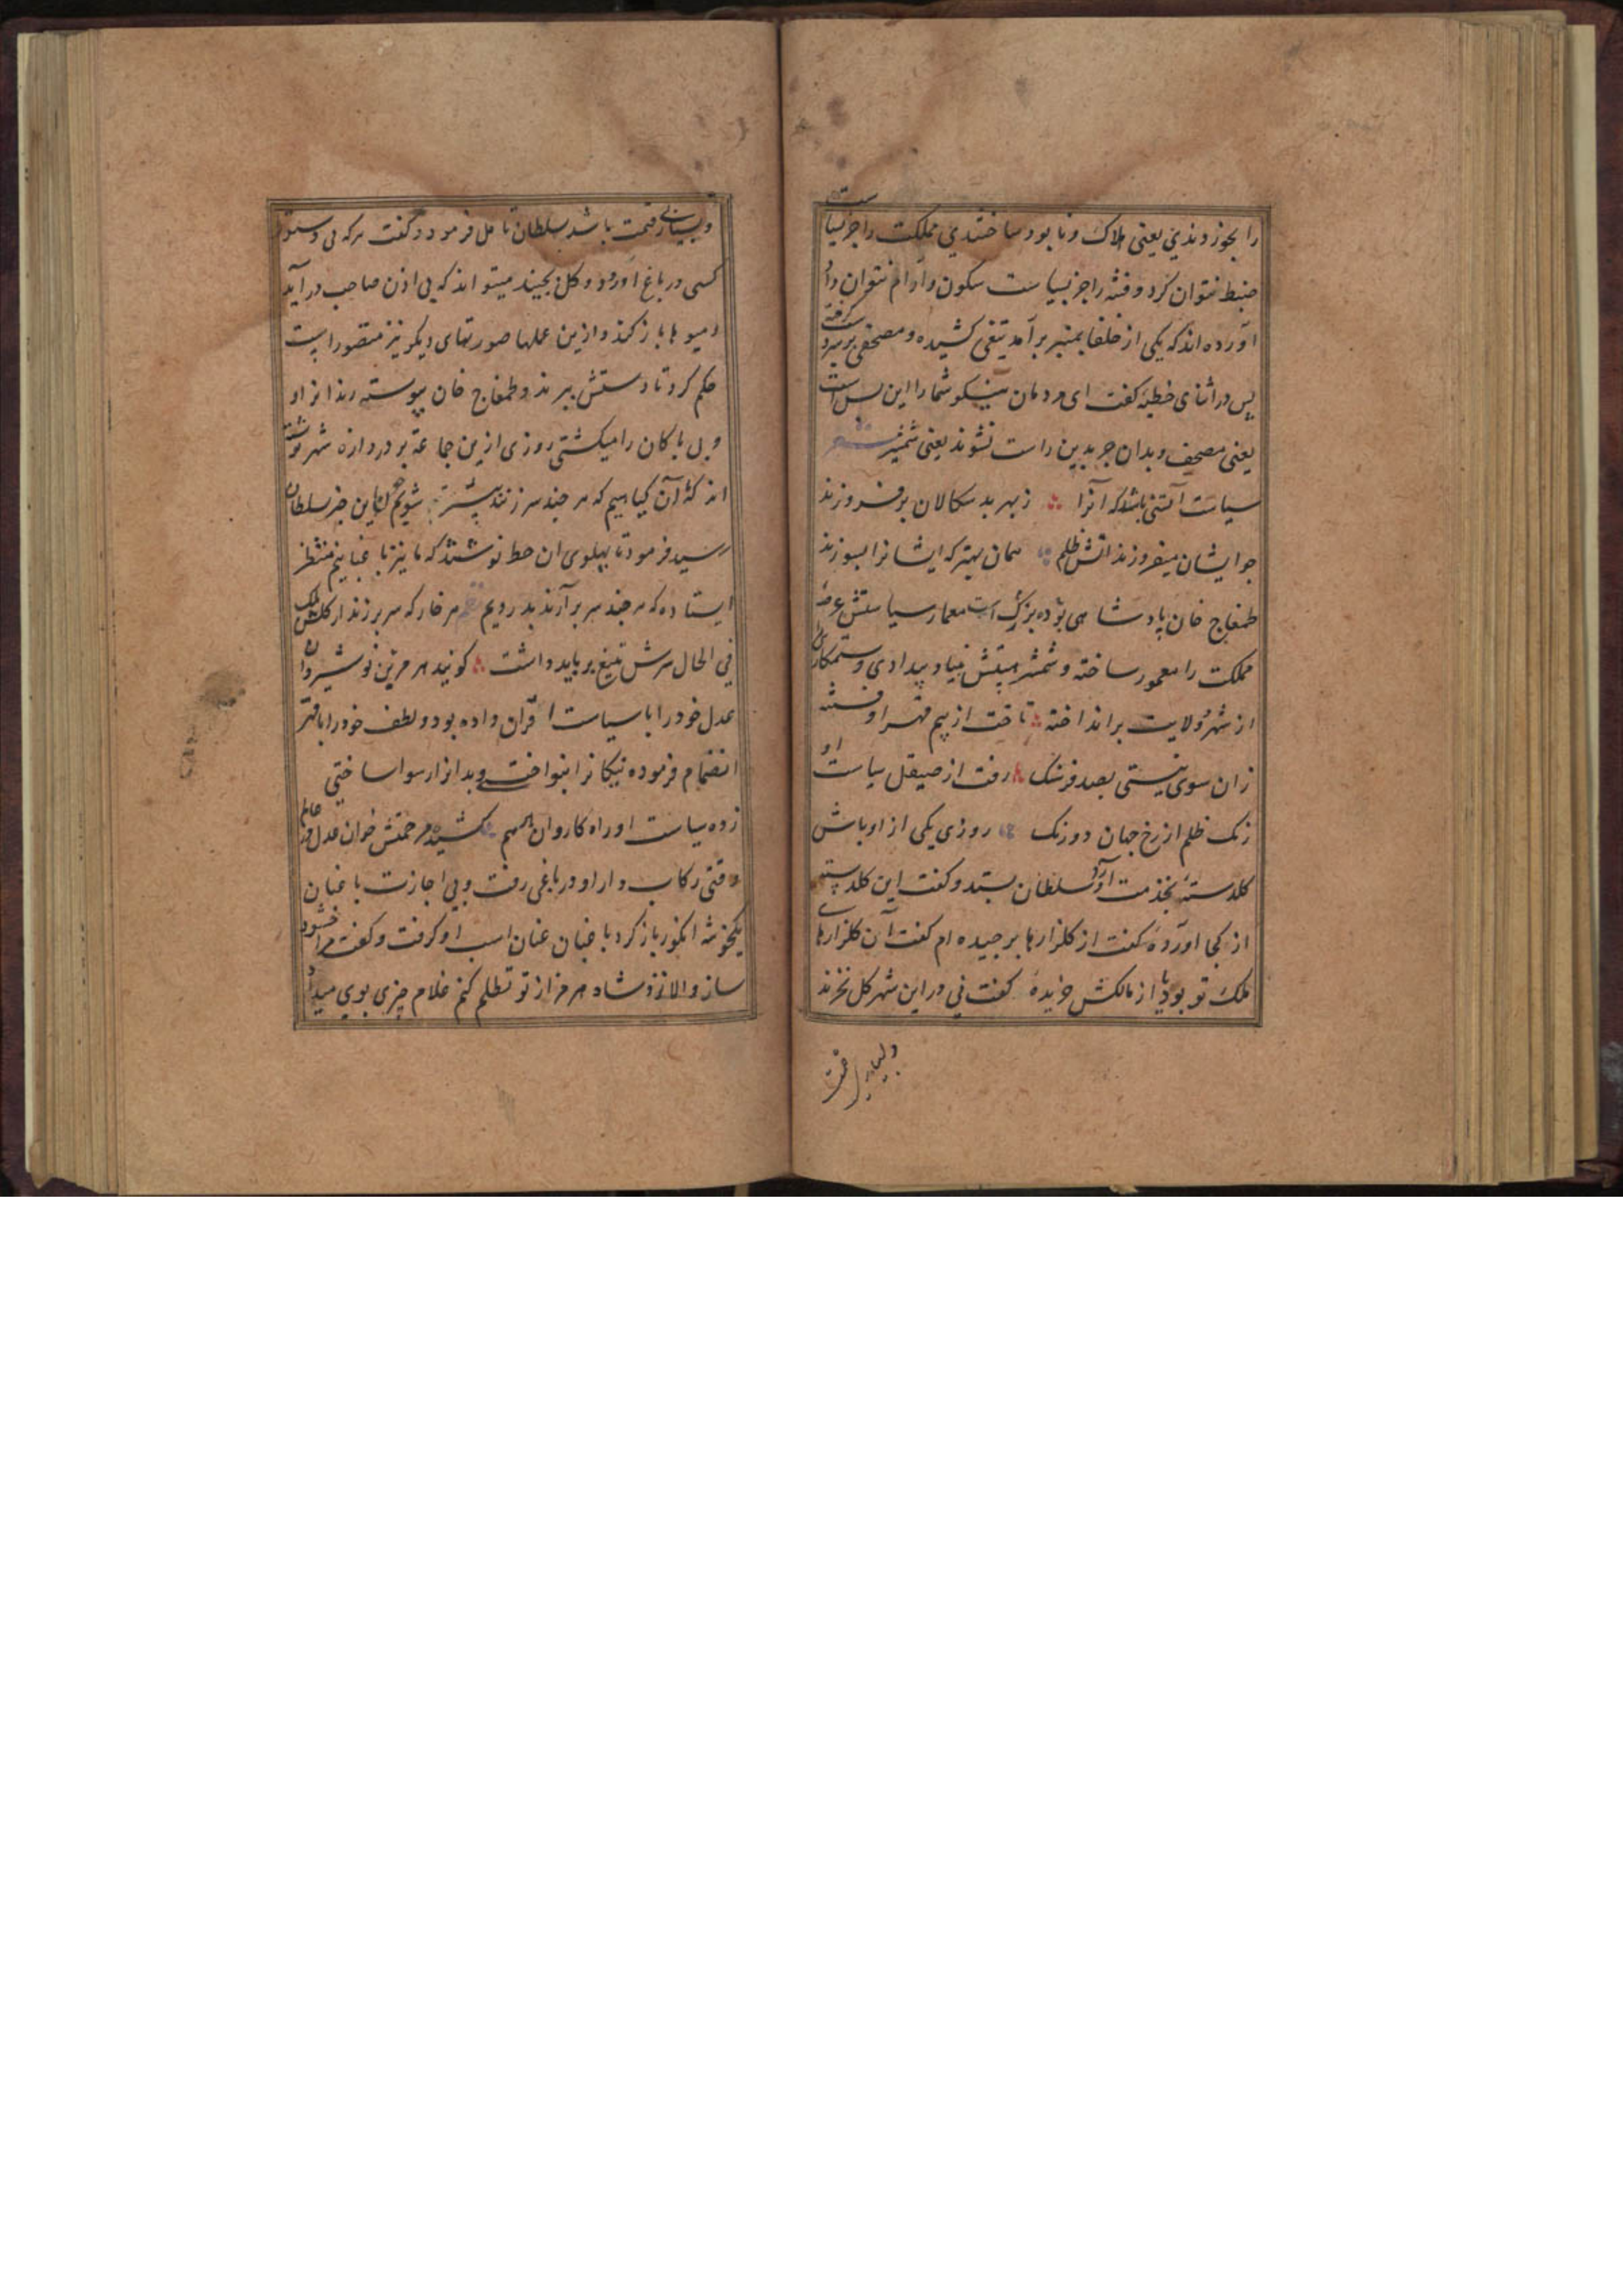 را بخوردندی یعنی هلاک و نابود ساختندی مملکت را جز بسیاست
ضبط نتوان کرد و فتنه را جز بسیاست سکون و آرام نتوان داد
آورده اند که یکی از خلفا بمنبر برآمد تیغی کشیده و مصحفی بر سر گرفته
پس در اثنای خطبه گفت ای مردمان نیکو شما را این بس است
یعنی مصحف و بدان جز بدین راست نشوند یعنی شمشیر شعر
سیاست آتشی باشد که آنرا زبهر بد سکالان بر فروزند
جو ایشان میفروزند اتش ظلم همان بهتر که ایشانرا بسوزند
طمغاج خان پادشاهی بوده بزرک است معمار سیاستش عرصه
مملکت را معمور ساخته و شمشیر هیبتش بنیاد بیدادی و ستمکاری
از شهر و ولایت برانداخته تاخت از بیم قهر او فتنه
زان سوی نیستی بصد فرسنک رفت از صیقل سیاست او
زنک ظلم از رخ جهان دو رنک روزی یکی از اوباش
کلدسته بخدمت سلطان آورد بستد و گفت این کلدسته
از کجا اورده گفت از کلزارها برجیده ام گفت آن کلزارهای
ملک تو بود یا از مالکش خریده گفت نی در این شهر کل نخرند
و بسیار بی قیمت
و بسیار بی قیمت باشد سلطان تامل فرمود و گفت هرکه بی دستور
کسی در باغ اورود و کل بجیند میتواند که بی اذن صاحب در آید
و میوها باز کند و ازین عملها صورتهای دیکر نیز متصور است
حکم کرد تا دستش ببرند و طمغاج خان پیوسته رندانرا و
و بی باکان را میکشتی روزی ازین جماعة بر دروازه شهر نوشته
اند که ما آن کیاهیم که هر جند سر زنند بیشتر شویم این خبر سلطان
رسید فرمود تا بپهلوی ان خط نوشتند که ما نیز باغبانیم منتظر
ایستاده که هر جند سر برآرند بدرویم هر خار که سر برزند از کلشن ملک
فی الحال سرش بتیغ برباید داشت کویند هرمز بن نوشیروان
عدل خود را با سیاست اقران داده بود و لطف خود را با قهر
انضمام فرموده نیکانرا بنواختی و بدانرا رسوا ساختی
زده سیاست او راه کاروان کشیده مرحمتش خوان عدل در عالم
وقتی رکاب دار او در باغی رفت و بی اجازت باغبان
یکخوشه انکور باز کرد باغبان عنان اسب او کرفت و گفت مرا خشنود
ساز و الا نزد شاه هرمز از تو تظلم کنم غلام چیزی بوی میداد